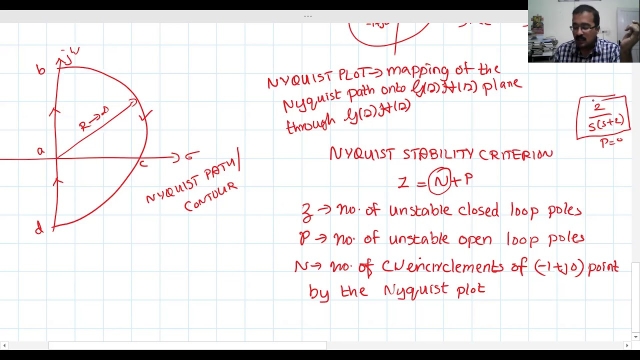 jω
b
a
R→∞
c
σ
d
NYQUIST PATH/
CONTOUR
NYQUIST PLOT→ mapping of the
Nyquist path onto G(s)H(s) plane
through G(s)H(s)
2
s(s+2)
P=0
NYQUIST STABILITY CRITERION
Z = N+P
Z → no. of unstable closed loop poles
P → no. of unstable open loop poles
N → no. of CW encirclements of (-1+j0) point
by the Nyquist plot